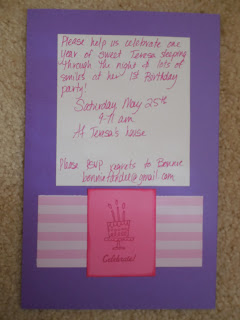 Please help us celebrate one
year of sweet Teresa sleeping
through the night & lots of
smiles at her 1st Birthday
party!
Saturday May 25th
9-11 am.
At Teresa's house
Please RSVP regrets to Bonnie
@gmail.com
Celebrate!